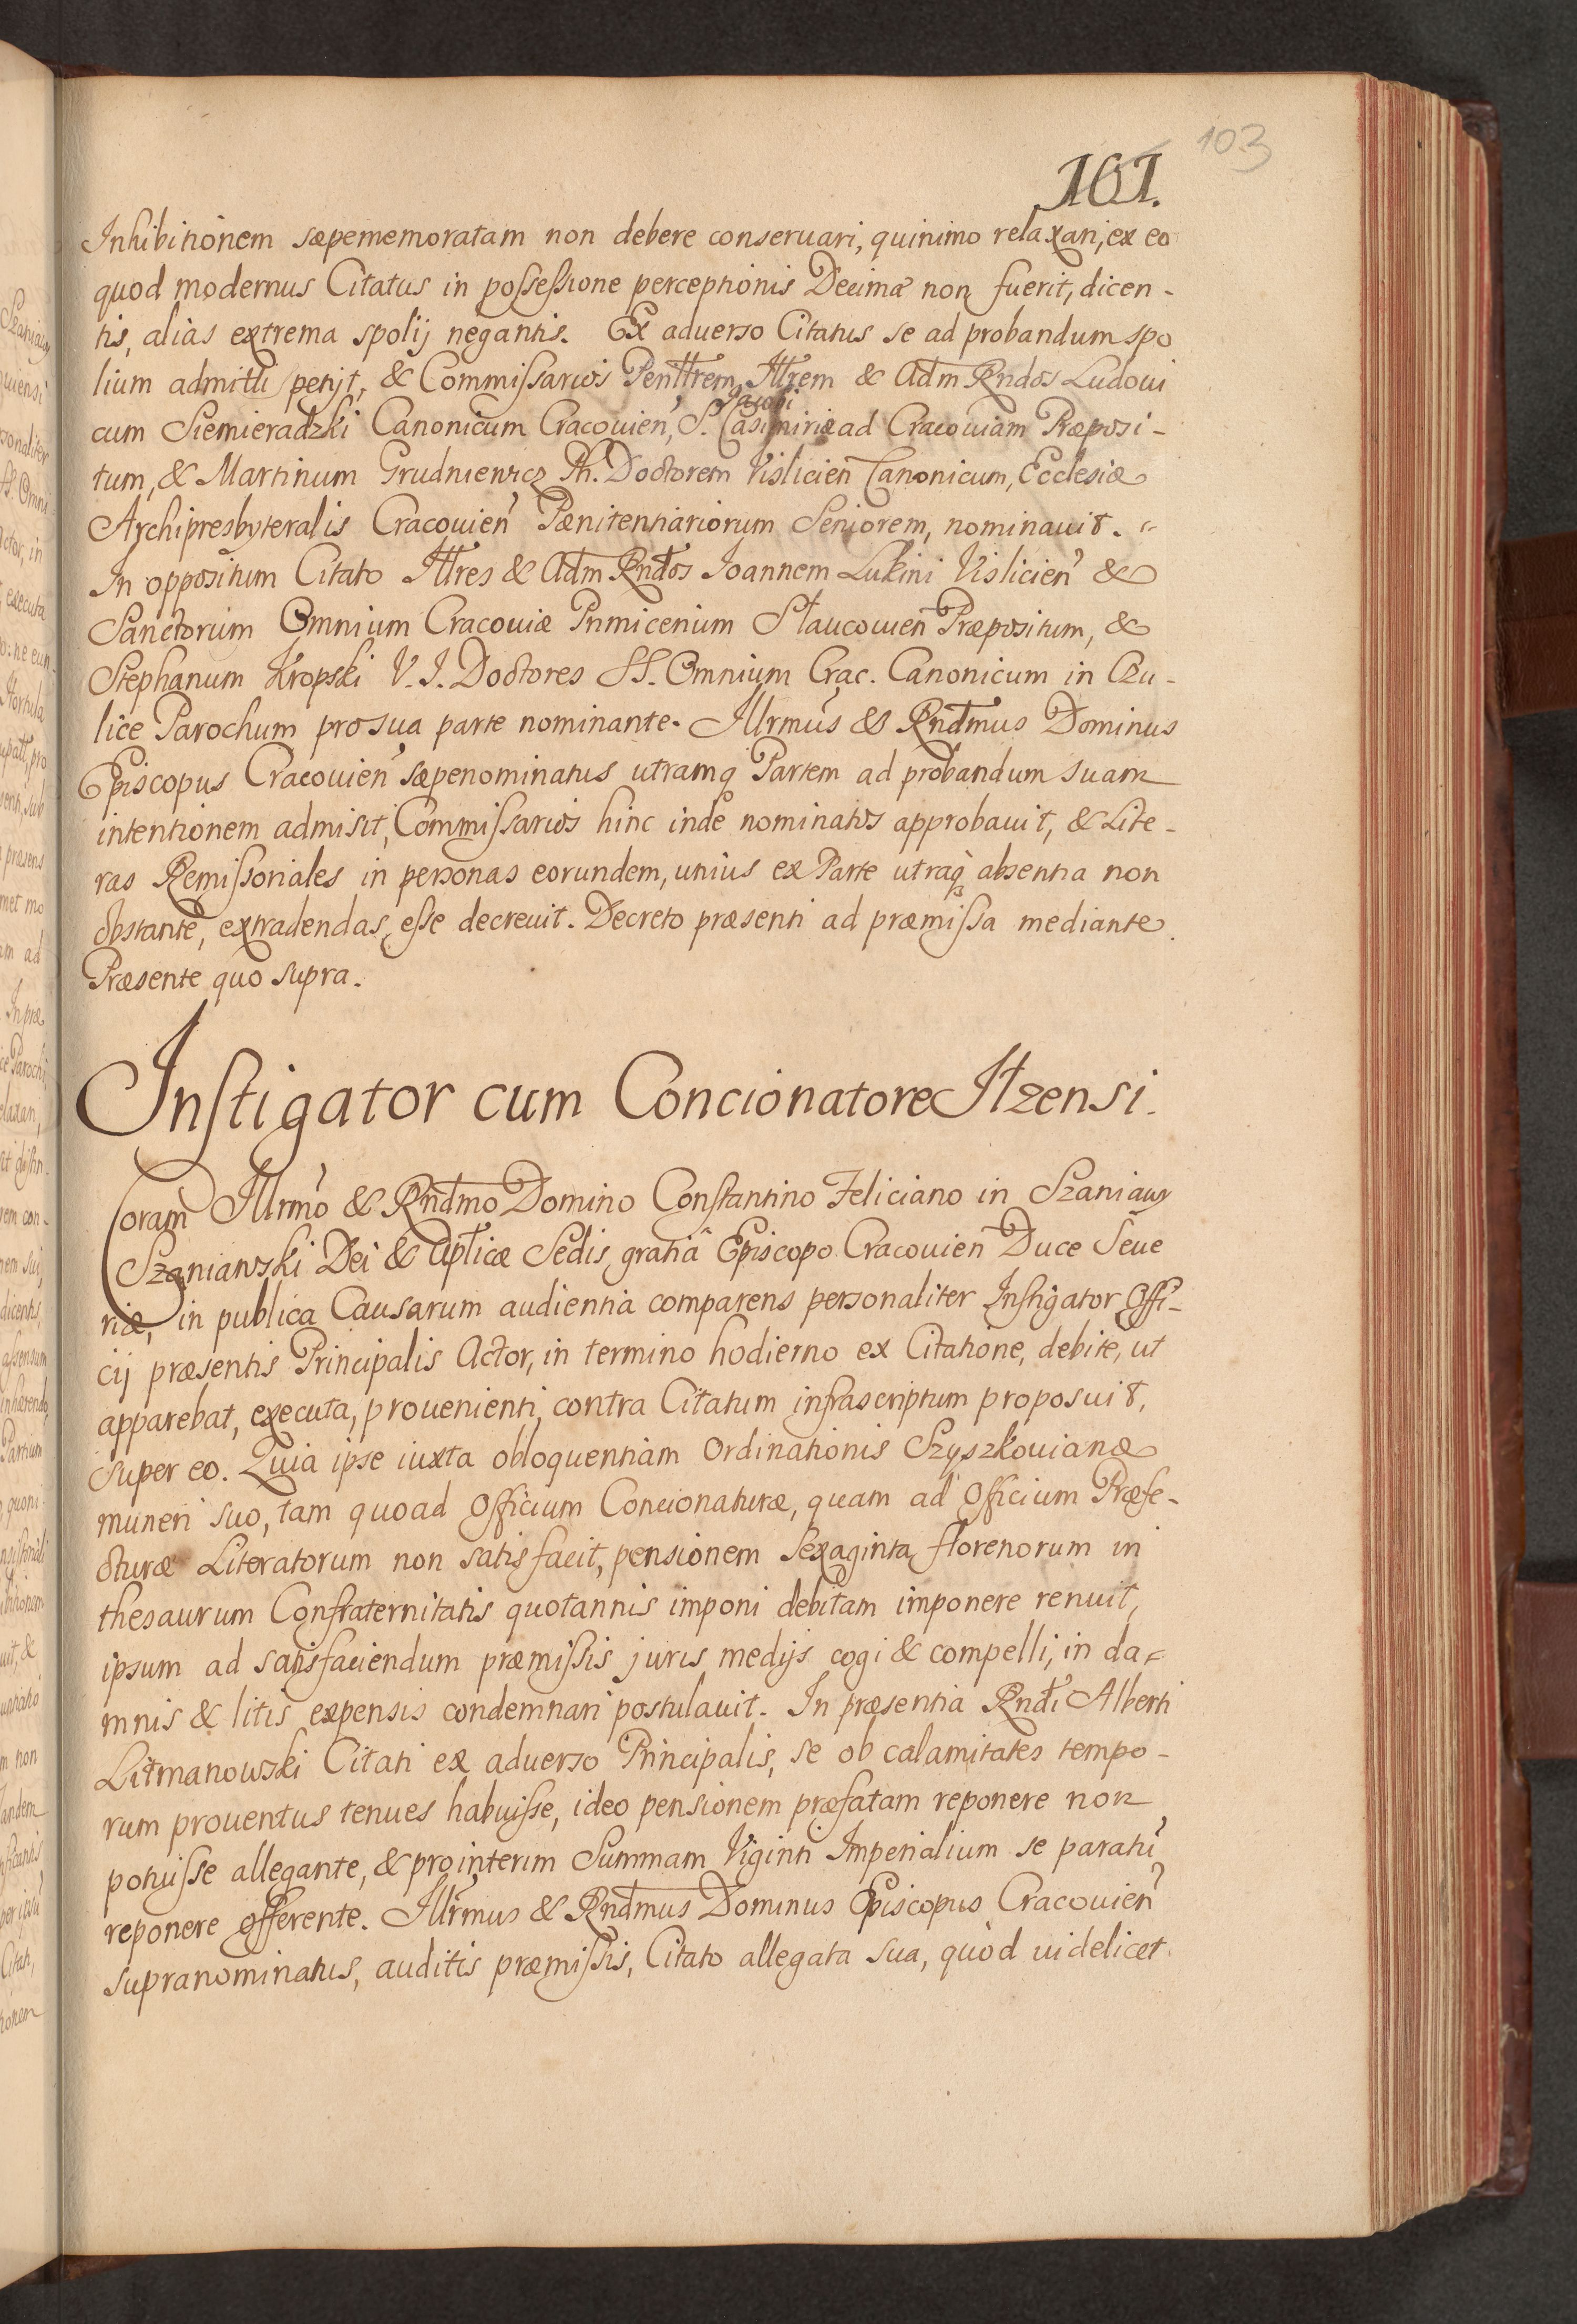 103
161.
Inhibitionem sæpememoratam non debere conseruari, quinimo relaxari, ex eo
quod modernus Citatus in possessione perceptionis Decimæ non fuerit, dicen-
tis, alias extrema spolij negantis. Ex aduerso Citatus se ad probandum spo
lium admitti petijt, & Commissarios Penlttrem, Illtrem & Adm Rndos Ludoui
Jacobi
cum Siemieradzki Canonicum Cracouien, S. Casimiriæ ad Cracouiam Præposi-
tum, & Martinum Grudniewicz Ph. Doctorem Vislicien Canonicum, Ecclesiæ
Archipresbyteralis Cracouien Pænitentiariorum Seniorem, nominauit.
In oppositum Citato Illtres & Adm Rndos Ioannem Lukini Vislicien &
Sanctorum Omnium Cracouiæ Primicerium Slaucouien Præpositum, &
Stephanum Kropski V. I. Doctores SS. Omnium Crac. Canonicum in Czu-
lice Parochum pro sua parte nominante. Illrmus & Rndmus Dominus
Episcopus Cracouien sæpenominatus utramq Partem ad probandum suam
intentionem admisit, Commissarios hinc inde nominatos approbauit, & Lite-
ras Remissoriales in personas eorundem, unius ex Parte utraq absentia non
obstante, extradendas esse decreuit. Decreto præsenti ad præmissa mediante.
Præsente quo supra.
Instigator cum Concionatore Ilzensi.
Coram Illrmo & Rndmo Domino Constantino Feliciano in Szaniawy
Szaniawski Dei & Aplicæ Sedis gratiâ Episcopo Cracouien Duce Seue
riæ, in publica Causarum audientia comparens personaliter Instigator Offi-
cij præsentis Principalis Actor, in termino hodierno ex Citatione, debite, ut
apparebat, executa, prouenienti, contra Citatum infrascriptum proposuit,
super eo. Quia ipse iuxta obloquentiam Ordinationis Szyszkouianæ
muneri suo, tam quoad Officium Concionaturæ, quam ad Officium Præfe-
cturæ Literatorum non satisfacit, pensionem sexaginta florenorum in
thesaurum Confraternitatis quotannis imponi debitam imponere renuit,
ipsum ad satisfaciendum præmissis juris medijs cogi & compelli, in da-
mnis & litis expensis condemnari postulauit. In præsentia Rndi Alberti
Litmanowski Citati ex aduerso Principalis, se ob calamitates tempo-
rum prouentus tenues habuisse, ideo pensionem præfatam reponere non
potuisse allegante, & prointerim Summam Viginti Imperialium se paratu
reponere offerente. Illrmus & Rndmus Dominus Episcopus Cracouien
supranominatus, auditis præmissis, Citato allegata sua, quòd uidelicet